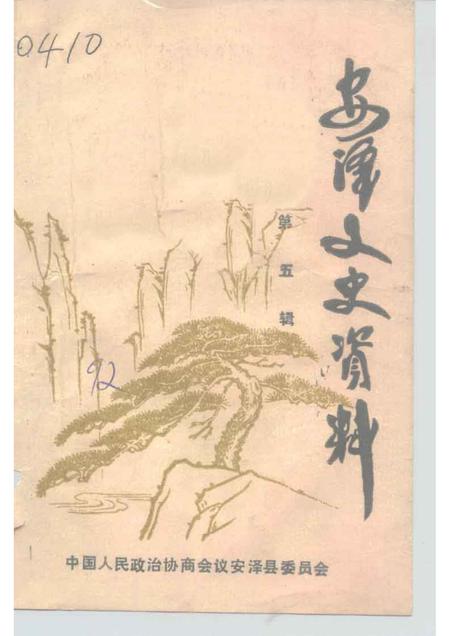 0410
安泽文史资料
第五辑
92
中国人民政治协商会议安泽县委员会